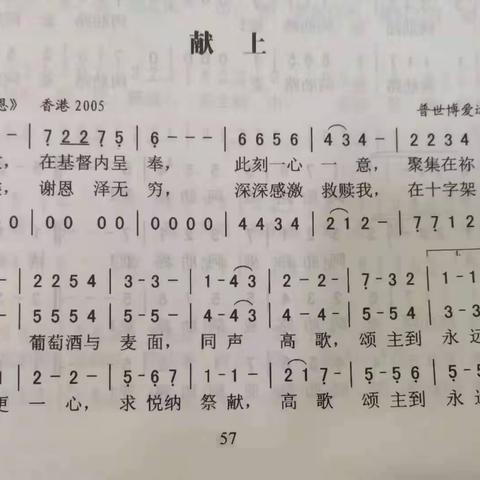 献 上
恩》 香港 2005 普世博爱运
- - 7 2 2 7 5 6 - - - 6 6 5 6 4 3 4 - 2 2 3 4
在基督内呈 奉， 此刻一心 一 意， 聚集在祢
谢恩 泽无 穷， 深深感激 救赎我， 在十字架
0 0 0 0 0 0 0 0 4 4 3 4 2 1 2 - 7 7 1 2
1.
- 2 2 5 4 3 - 3 - 1 - 4 3 2 - 2 - 7 - 3 2 1 - 1
- 5 5 5 4 3 - 3 - 5 - 4 3 4 - 4 - 5 - 5 4 3 - 3
葡萄酒与 麦面， 同声 高歌， 颂主到 永远
1 - 2 - 2 - 5 - 6 7 1 - 1 - 2 1 7 - 5 - 5 6 5 - 5
更 一心， 求悦纳 祭献， 高 歌 颂 主到 永 远
57